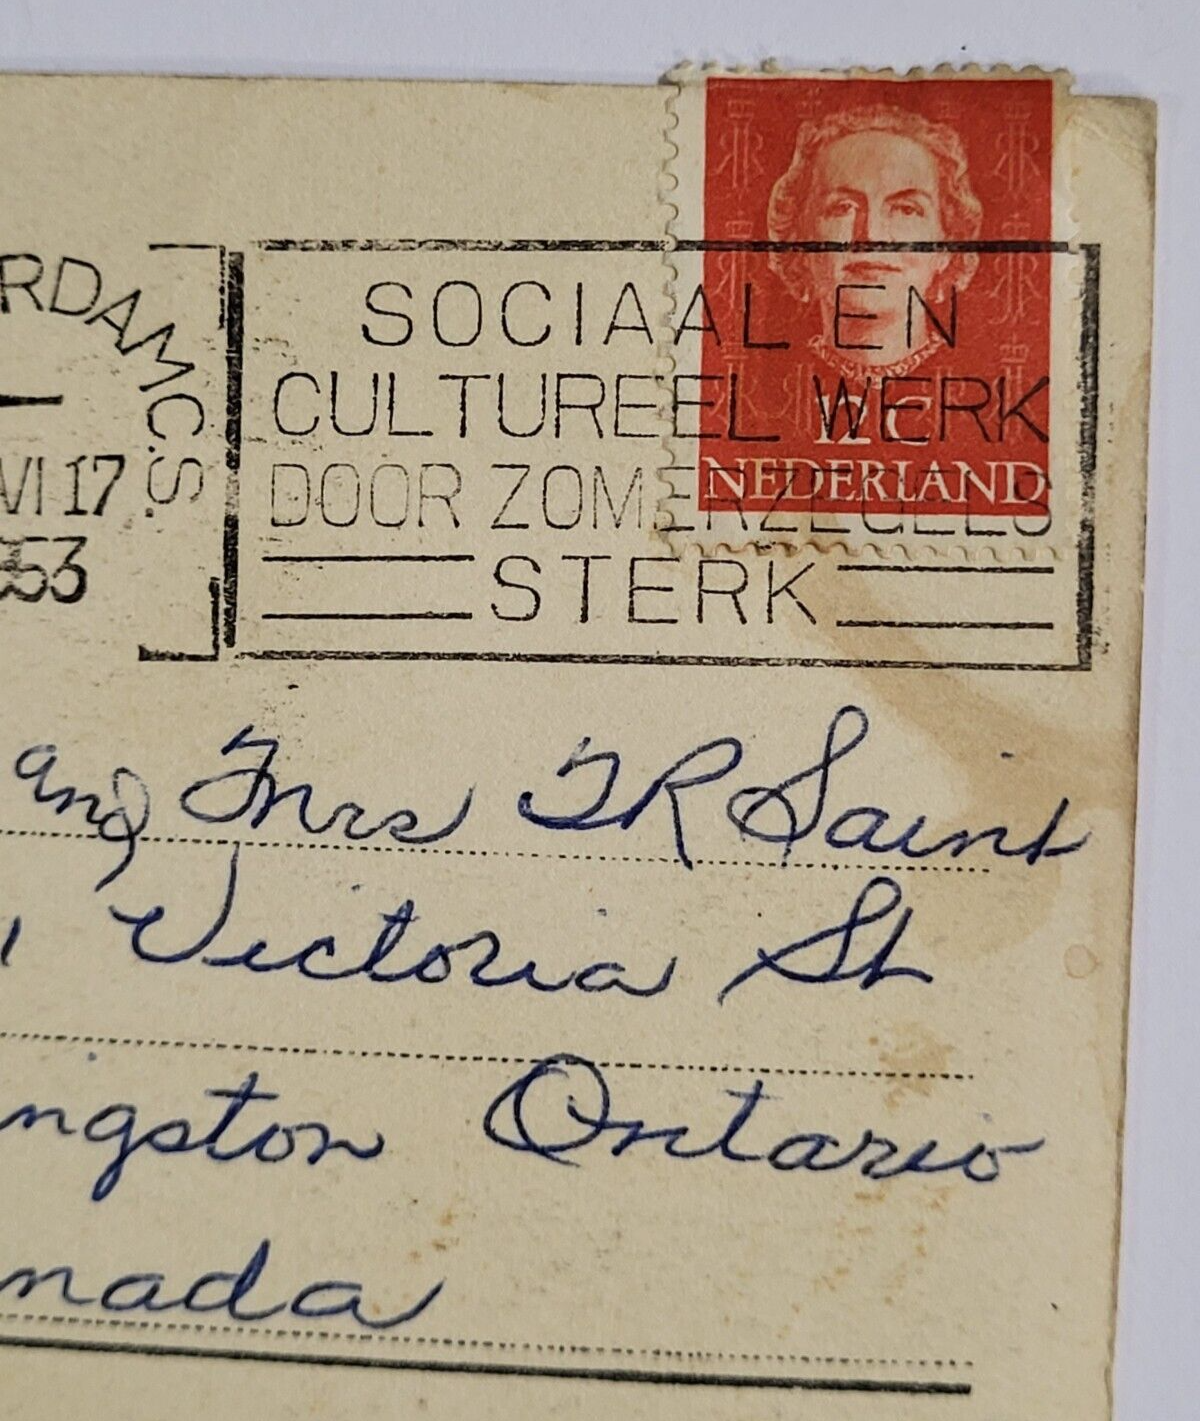 RDAM C.S.
VI 17
1953
SOCIAAL EN
CULTUREEL WERK
DOOR ZOMERZEGELS
STERK
12 C
NEDERLAND
and Mrs T R Saint
Victoria St
ngston Ontario
nada